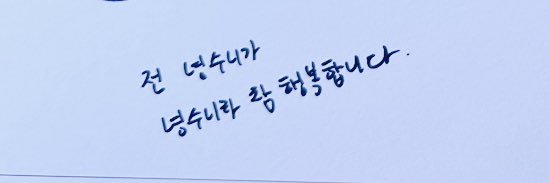 전 녕수니가
녕수니라 참 행복합니다.